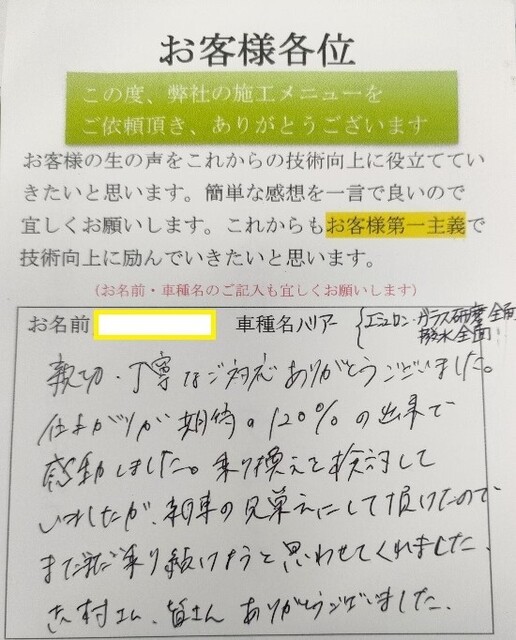 お客様各位
この度、弊社の施工メニューを
ご依頼頂き、ありがとうございます
お客様の生の声をこれからの技術向上に役立ててい
きたいと思います。簡単な感想を一言で良いので
宜しくお願いします。これからもお客様第一主義で
技術向上に励んでいきたいと思います。
(お名前・車種名のご記入も宜しくお願いします)
お名前 車種名ハリアー ガラス研磨全面
撥水全面
親切・丁寧なご対応ありがとうございました。
仕上がりが期待の120%の出来で
感動しました。乗り換えを検討して
いましたが、新車の見栄えにして頂けたので
まだまだ乗り続けようと思わせてくれました。
村さん、皆さん ありがとうございました。